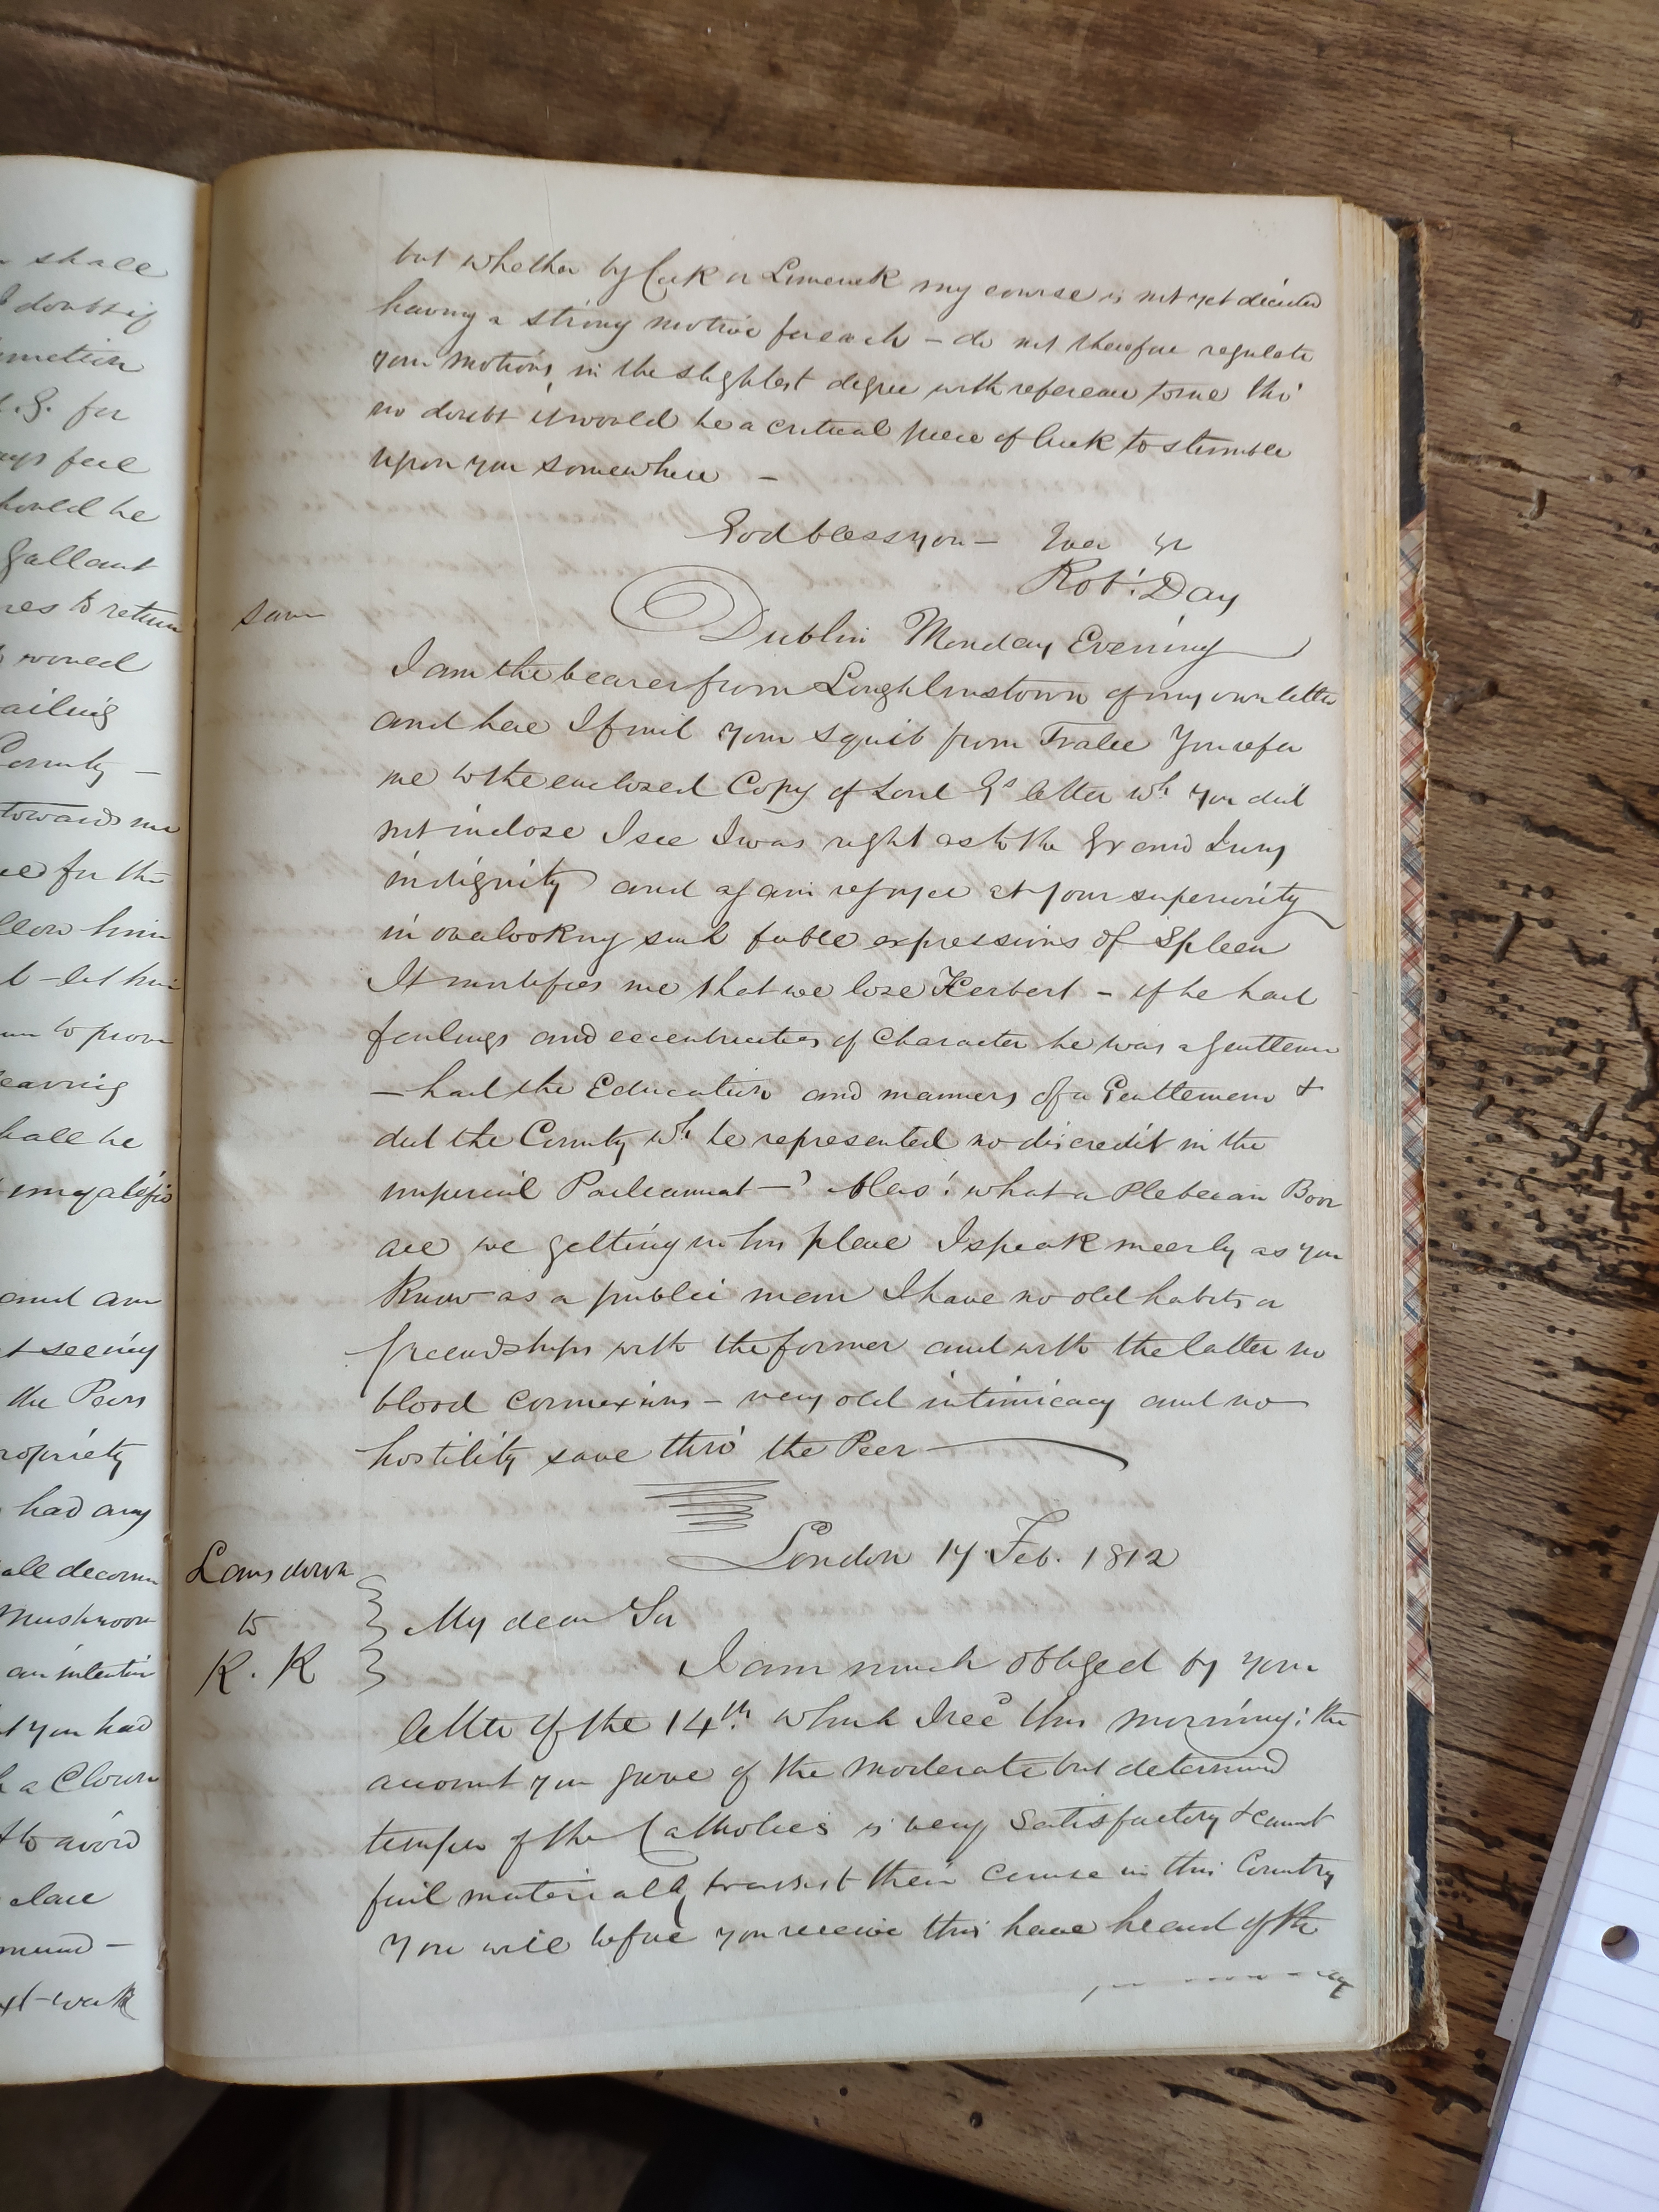 shall
doubt if
S. for
feel
should be
Gallant
to return
would
ailing
County —
towards me
for the
him
— let him
to prove
shall be
and am
seeing
the Peers
propriety
had any
all decorum
Mushroom
an intention
you had
a Clown
to avoid
place
but whether by Cork or Limerick my course is not yet decided
having a strong motive for each — do not therefore regulate
your motions, in the slightest degree with reference to me tho'
no doubt it would be a critical piece of luck to stumble
upon you somewhere —
God bless you — Ever yr
Robt. Day
same
Dublin Monday Evening
I am the bearer from Loughlinstown of my own letter
and here I find your squib from Tralee You refer
me to the enclosed Copy of Lord Gs letter wh. you did
not inclose I see I was right as to the Grand Jury
indignity and again rejoyce at your superiority
in overlooking such feeble expressions of Spleen
It mortifies me that we lose Herbert — if he had
feelings and eccentricities of Character he was a gentleman
— had the Education and manners of a Gentleman &
did the County wh. he represented no discredit in the
imperial Parliament — Alas! what a Plebeian Boor
are we getting in his place I speak meerly as you
know as a public man I have no old habits or
friendships with the former and with the latter no
blood connexions — very old intimicacy and no
hostility save thro' the Peer
Lansdown
to
R. K
London 17 Feb. 1812
My dear Sir
I am much obliged by your
letter of the 14th. which I recd this morning; the
account you gave of the moderate but determined
temper of the Catholics is very satisfactory & cannot
fail materially to assist their cause in this Country
You will before you receive this have heard of the